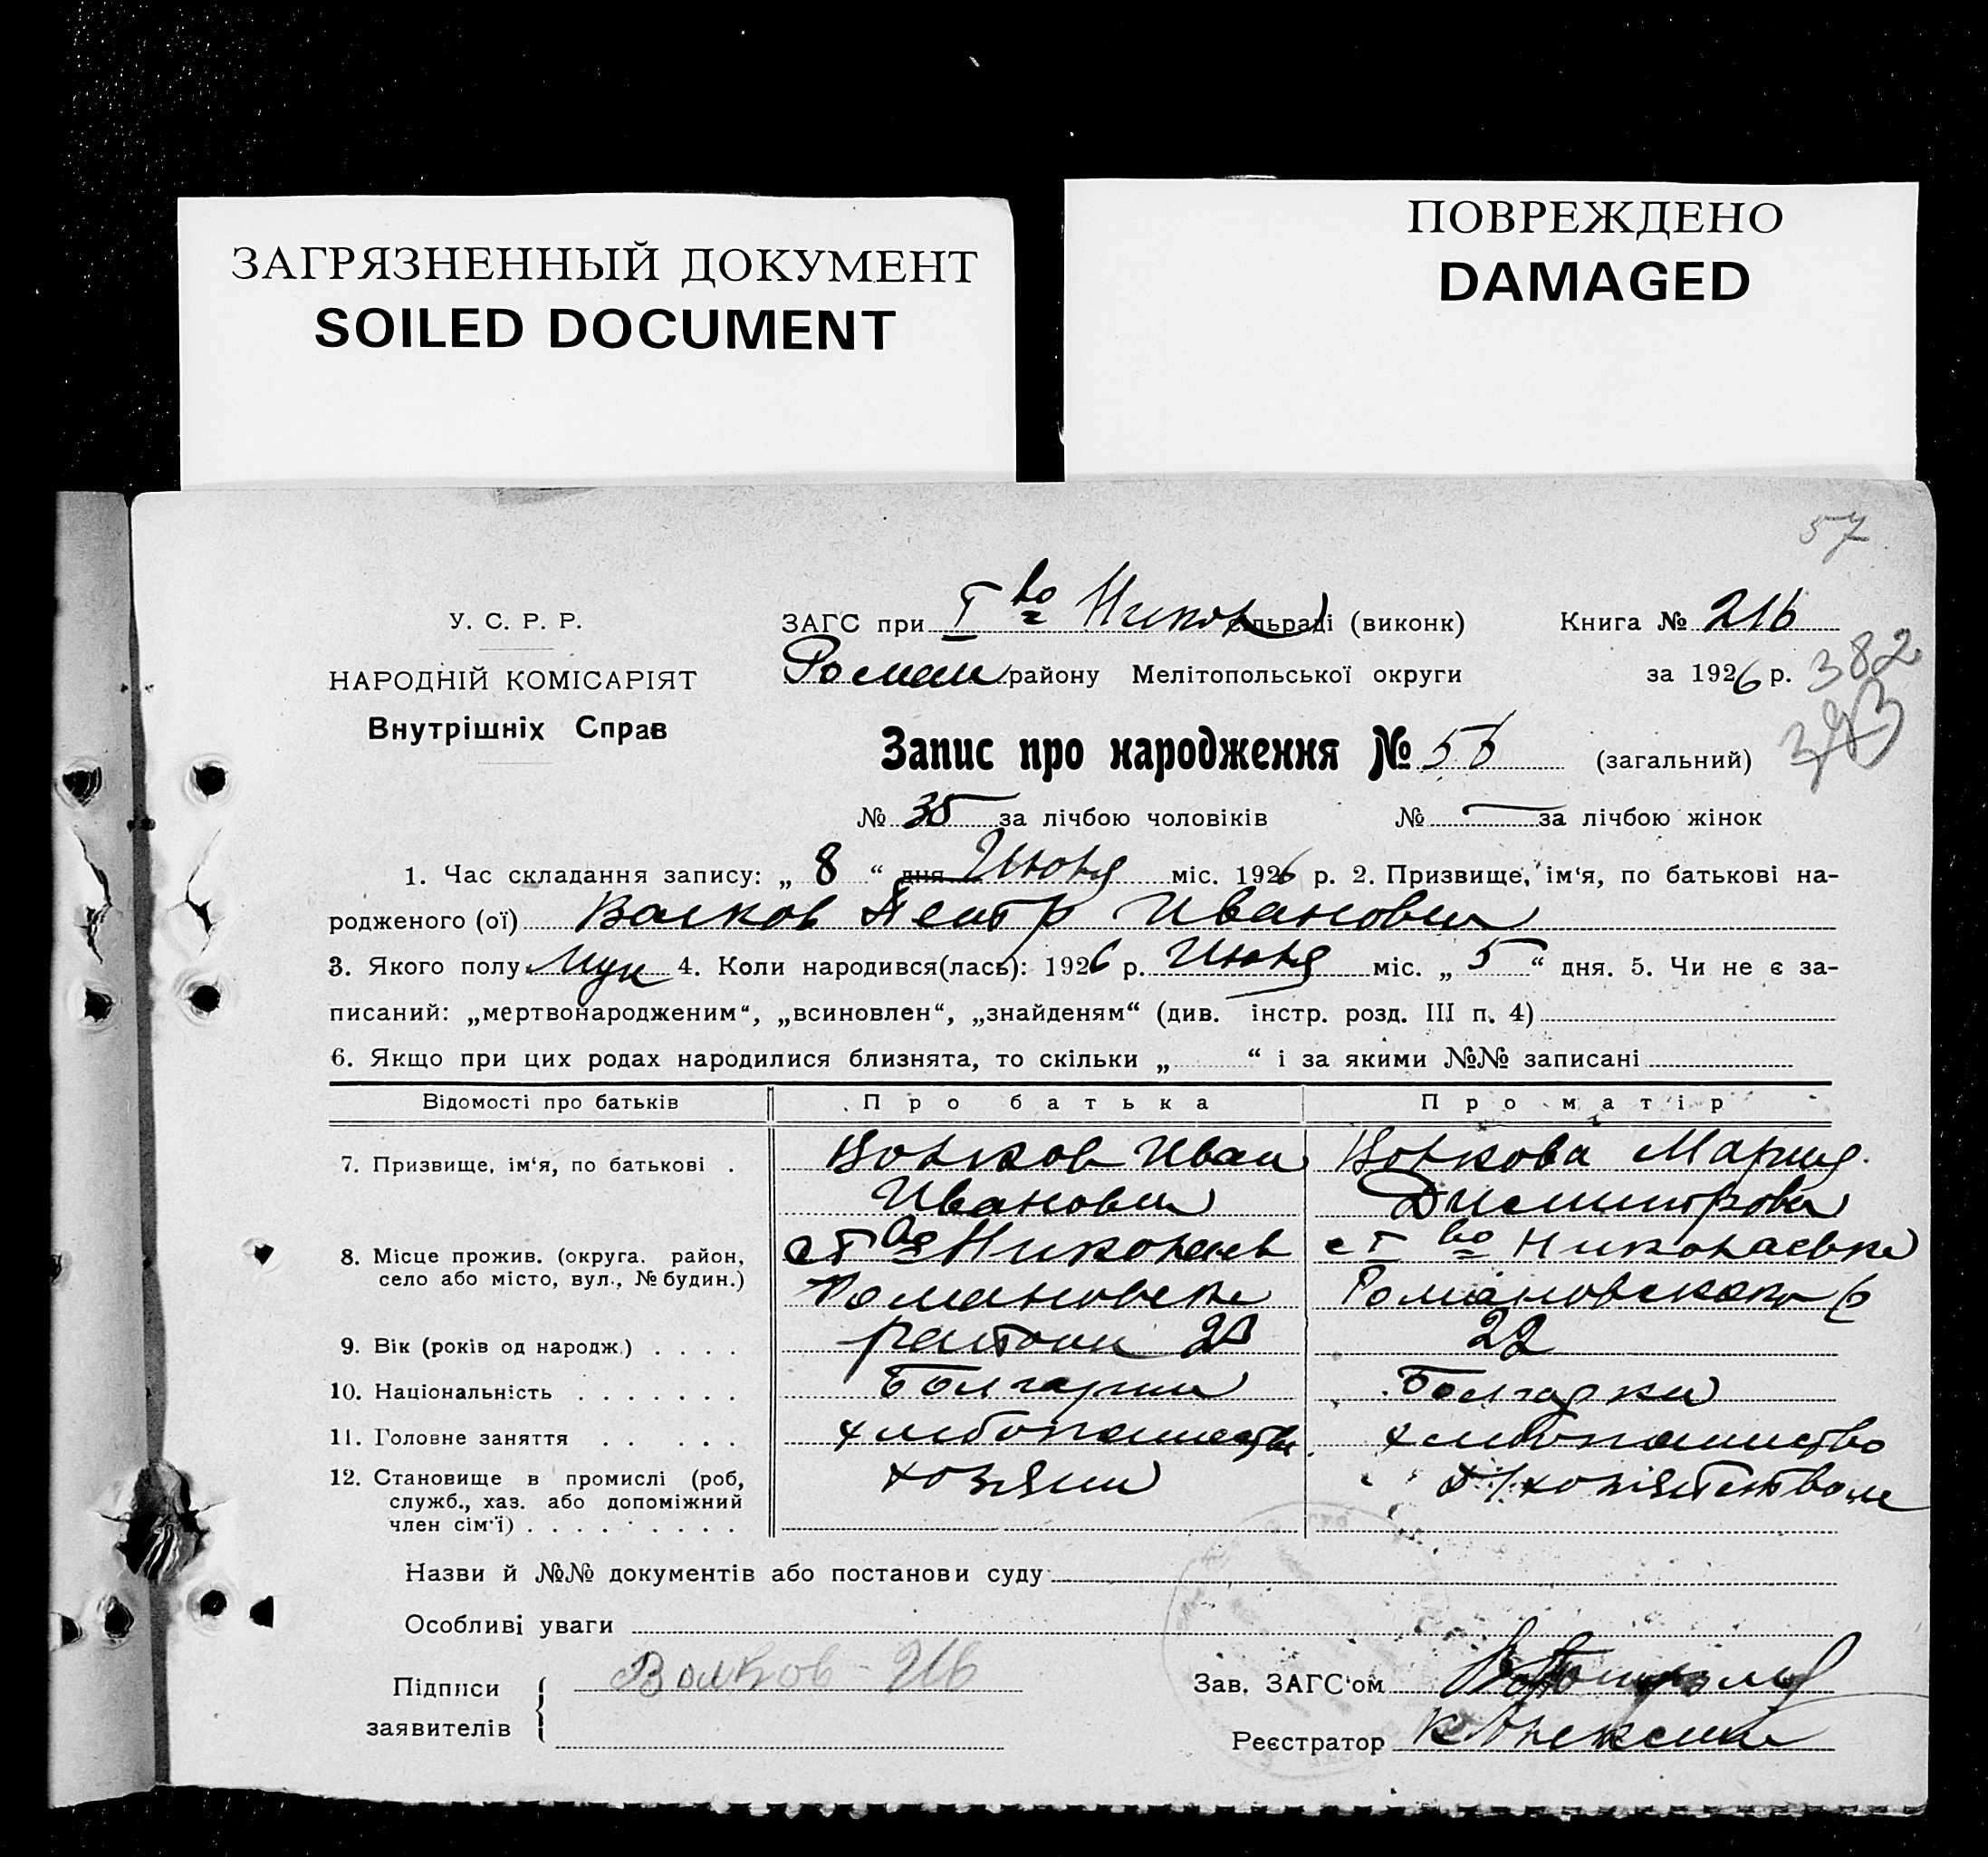 ЗАГРЯЗНЕННЫЙ ДОКУМЕНТ
SOILED DOCUMENT
ПОВРЕЖДЕНО
DAMAGED
57
У. С. Р. Р.
НАРОДНІЙ КОМІСАРІЯТ
Внутрішніх Справ
ЗАГС при I во Никол сільраді (виконк) Книга № 216
Роман району Мелітопольської округи за 1926 р. 382
Запис про народження № 56 (загальний)
№ 35 за лічбою чоловіків № — за лічбою жінок
1. Час складання запису: „ 8 “ дня Июня міс. 1926 р. 2. Призвище, ім‘я, по батькові на-
родженого (ої) Волков Петр Иванович
3. Якого полу Муж 4. Коли народився(лась): 1926 р. Июня міс. „ 5 “ дня. 5. Чи не є за-
писаний: „мертвонародженим“, „всиновлен“, „знайденям“ (див. інстр. розд. III п. 4)
6. Якщо при цих родах народилися близнята, то скільки „ “ і за якими №№ записані
Відомості про батьків Про батька Про матір
7. Призвище, ім‘я, по батькові . Волков Иван Волкова Мария
Иванович Дмитрова
8. Місце прожив. (округа. район, с I во Николаев с I во Николаевке
село або місто, вул., № будин.) Романовск Романовского р
9. Вік (років од народж.) . . . . района 22
10. Національність . . . . . . . Болгарин Болгарка
11. Головне заняття . . . . . хлебопашество хлебопашество
12. Становище в промислі (роб, хозяин д/хозяйством
служб., хаз. або допоміжний
член сім‘ї) . . . . . . . . .
Назви й №№ документів або постанови суду
Особливі уваги
Підписи Волков Ив Зав. ЗАГС‘ом
заявителів
Реєстратор